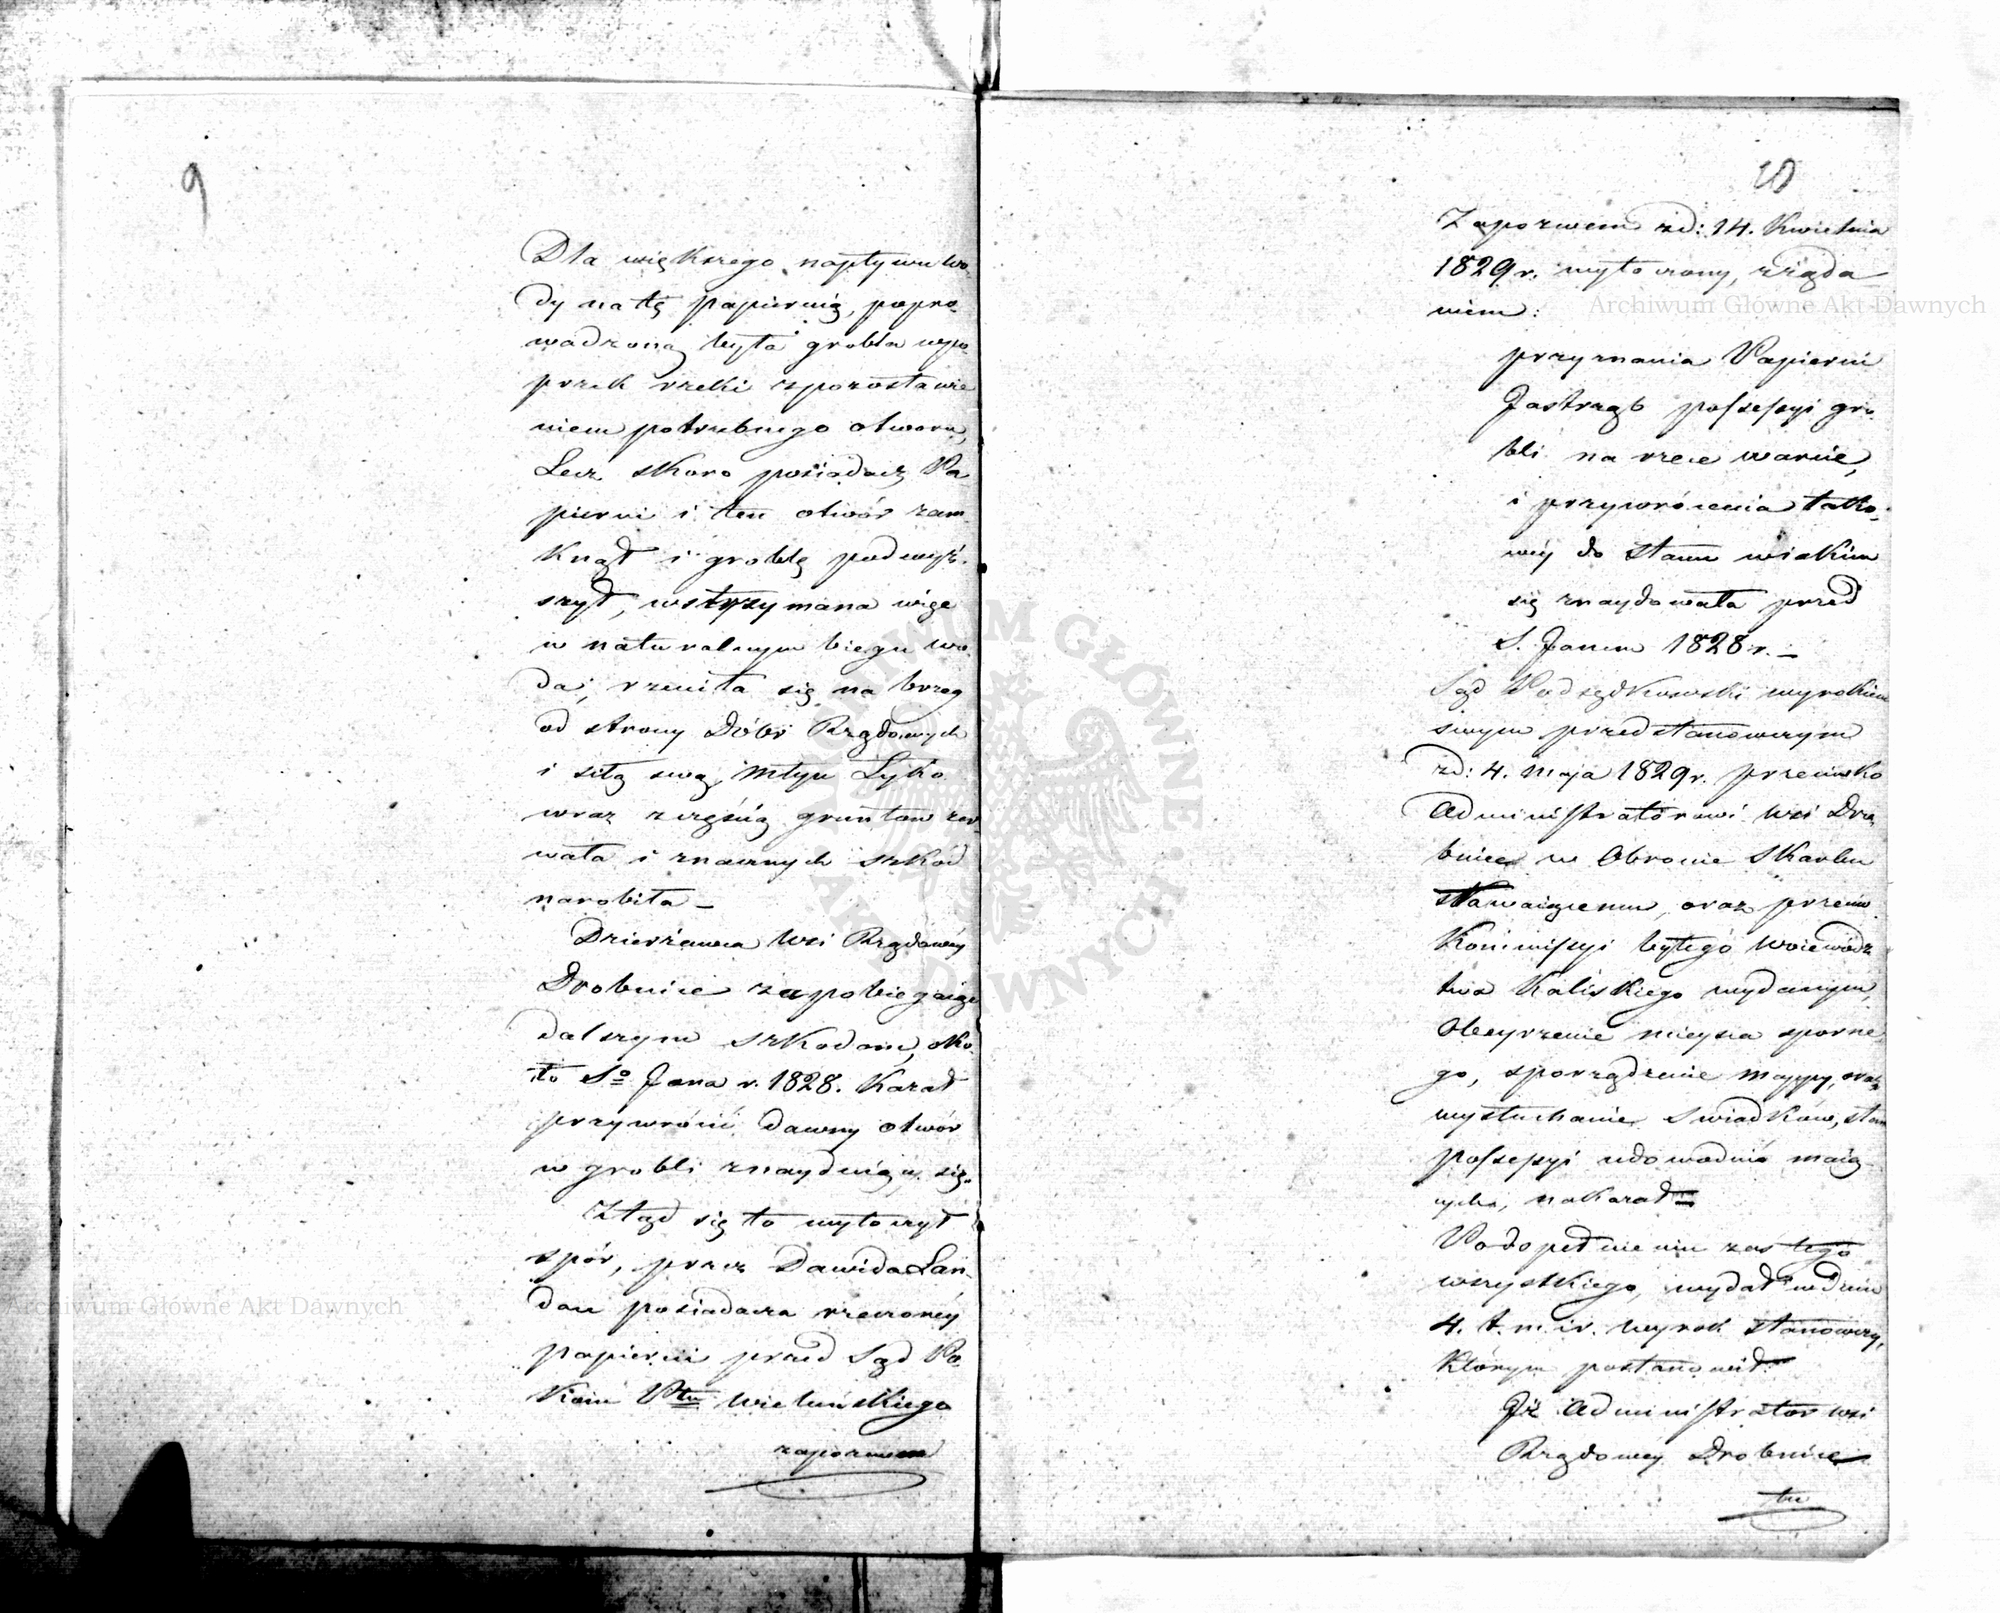 9
Dla większego napływu wo-
dy na tę papiernią, popro-
wadzoną była grobla wpo-
przek rzeki z pozostawie
niem potrzebnego otworu,
Lecz skoro posiadacz Pa
pierni i ten otwór zam-
knął i groblę podwyż-
szył, wstrzymana więc
w naturalnym biegu wo-
da, rzuciła się na brzeg
od strony Dóbr Rządowych
i siłą swą, Młyn Łyko
wraz z częścią gruntów zer
wała i znacznych szkód
narobiła –
Dzierżawca Wsi Rządowéy
Drobnice zapobiegaiąc
dalszym szkodom, oko-
ło So Jana r. 1828. Kazał
przywrócić dawny otwór
w grobli znayduiący się.
Ztąd się to wytoczył
spór, przez Dawida Lan-
dau posiadacza rzeczonéy
papierni przed Sąd Po-
koiu Ptu Wieluńskiego
zapozwem
10
Zapozwem zd: 14. Kwietnia
1829 r. wytoczony, z żąda
niem:
przyznania Papierni
Jastrząb possessyi gro-
bli na rzece Warcie,
i przywrócenia tako-
wéy do stanu w iakim
się znaydowała przed
S. Janem 1828 r. –
Sąd Podsędkowski wyrokiem
swym przedstanowczym
zd: 4. Maja 1829 r. przeciwko
Administratorowi wsi Dro
bnice w Obronie Skarbu
stawaiącemu, oraz przeciw
Kommissyi byłego Woiewódz
twa Kaliskiego wydanym,
Obeyrzenie mieysca sporne
go, sporządzenie mappy, oraz
wysłuchanie Swiadków, stan
possessyi udowodnić maią-
cych, nakazał =
Po dopełnieniu zaś tego
wszystkiego, wydał w dniu
4. t. m. i r. wyrok stanowczy,
którym postanowił:
Iż Administrator wsi
Rządowey Drobnice
tu
Archiwum Główne Akt Dawnych
Archiwum Główne Akt Dawnych
ARCHIWUM GŁÓWNE · AKT DAWNYCH ·